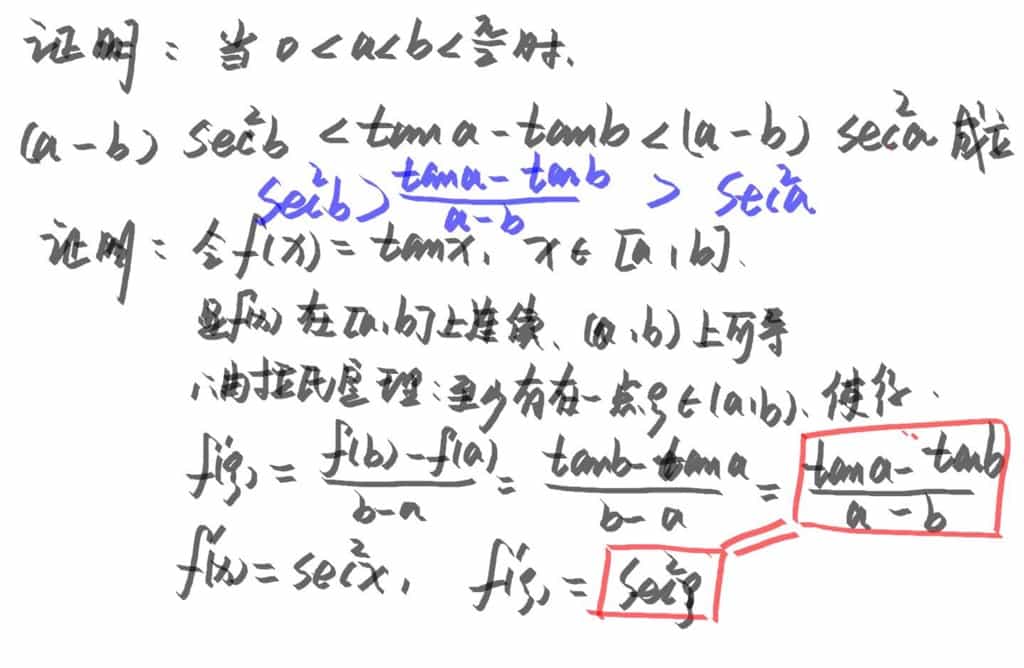 证明：当 0<a<b<π/2 时.
(a-b) sec²b < tan a - tan b < (a-b) sec²a 成立
sec²b > (tan a - tan b)/(a-b) > sec²a
证明：令 f(x) = tan x, x∈[a,b].
显f(x) 在[a,b]上连续、(a,b)上可导
∴由拉氏定理：至少存在一点ξ∈(a,b)、使得.
f'(ξ) = (f(b)-f(a))/(b-a) = (tan b - tan a)/(b-a) = (tan a - tan b)/(a-b)
f'(x) = sec²x, f'(ξ) = sec²ξ